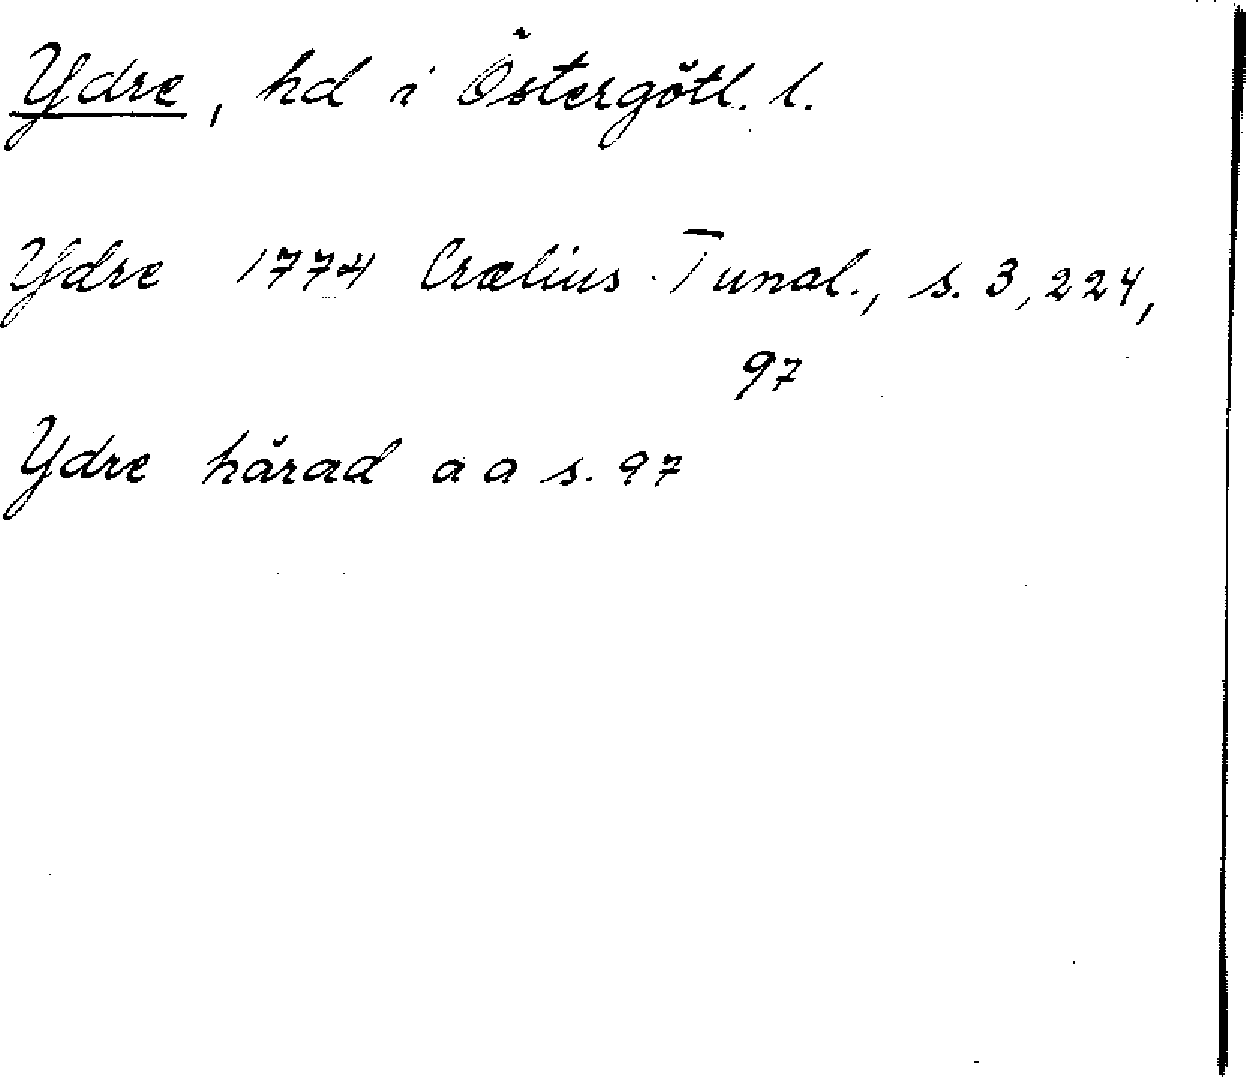 Ydre, hd i Östergötl. l.
Ydre 1774 Crælius Tunal., s. 3, 224,
97
Ydre härad a a s. 97